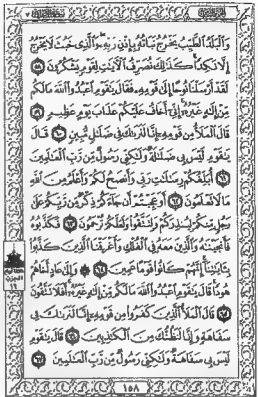 وَٱلْبَلَدُ ٱلطَّيِّبُ يَخْرُجُ نَبَاتُهُۥ بِإِذْنِ رَبِّهِۦ وَٱلَّذِى خَبُثَ لَا يَخْرُجُ
إِلَّا نَكِدًا كَذَٰلِكَ نُصَرِّفُ ٱلْـَٔايَٰتِ لِقَوْمٍ يَشْكُرُونَ ٥٨
لَقَدْ أَرْسَلْنَا نُوحًا إِلَىٰ قَوْمِهِۦ فَقَالَ يَٰقَوْمِ ٱعْبُدُوا۟ ٱللَّهَ مَا لَكُم
مِّنْ إِلَٰهٍ غَيْرُهُۥٓ إِنِّىٓ أَخَافُ عَلَيْكُمْ عَذَابَ يَوْمٍ عَظِيمٍ ٥٩
قَالَ ٱلْمَلَأُ مِن قَوْمِهِۦٓ إِنَّا لَنَرَىٰكَ فِى ضَلَٰلٍ مُّبِينٍ ٦٠ قَالَ
يَٰقَوْمِ لَيْسَ بِى ضَلَٰلَةٌ وَلَٰكِنِّى رَسُولٌ مِّن رَّبِّ ٱلْعَٰلَمِينَ
٦١ أُبَلِّغُكُمْ رِسَٰلَٰتِ رَبِّى وَأَنصَحُ لَكُمْ وَأَعْلَمُ مِنَ ٱللَّهِ
مَا لَا تَعْلَمُونَ ٦٢ أَوَعَجِبْتُمْ أَن جَآءَكُمْ ذِكْرٌ مِّن رَّبِّكُمْ عَلَىٰ
رَجُلٍ مِّنكُمْ لِيُنذِرَكُمْ وَلِتَتَّقُوا۟ وَلَعَلَّكُمْ تُرْحَمُونَ ٦٣ فَكَذَّبُوهُ
فَأَنجَيْنَٰهُ وَٱلَّذِينَ مَعَهُۥ فِى ٱلْفُلْكِ وَأَغْرَقْنَا ٱلَّذِينَ كَذَّبُوا۟
بِـَٔايَٰتِنَآ إِنَّهُمْ كَانُوا۟ قَوْمًا عَمِينَ ٦٤ وَإِلَىٰ عَادٍ أَخَاهُمْ
هُودًا قَالَ يَٰقَوْمِ ٱعْبُدُوا۟ ٱللَّهَ مَا لَكُم مِّنْ إِلَٰهٍ غَيْرُهُۥٓ أَفَلَا تَتَّقُونَ
٦٥ قَالَ ٱلْمَلَأُ ٱلَّذِينَ كَفَرُوا۟ مِن قَوْمِهِۦٓ إِنَّا لَنَرَىٰكَ فِى
سَفَاهَةٍ وَإِنَّا لَنَظُنُّكَ مِنَ ٱلْكَٰذِبِينَ ٦٦ قَالَ يَٰقَوْمِ
لَيْسَ بِى سَفَاهَةٌ وَلَٰكِنِّى رَسُولٌ مِّن رَّبِّ ٱلْعَٰلَمِينَ ٦٧
١٥٨